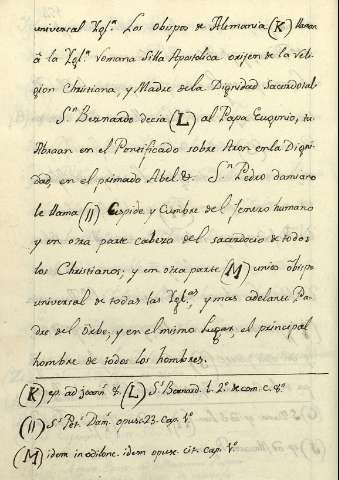 universal Ygl.ª Los obispos de Alemania (K) llaman
á la Ygl.ª romana Silla Apostolica origen de la reli-
gion Christiana, y Madre de la Dignidad Sacerdotal.
S.n Bernardo decia (L) al Papa Eugenio, tu
Abraan en el Pontificado sobre Aron en la Digni-
dad, en el primado Abel &. S.n Pedro damiano
le llama (Il) Cuspide y Cumbre del Jenero humano
y en otra parte cabeza del sacerdocio de todos
los Christianos; y en otra parte (M) unico obispo
universal de todas las Ygl.as, y mas adelante Pa-
dre del Orbe; y en el mismo lugar, el principal
hombre de todos los hombres.
(K) ep. ad Joan̄ &. (L) S.n Bernard. l. 2.º de com. c. 8.º
(Il) S.n Pet.s Dam. opusc. 23. cap. 1.º
(M) idem in odilone. idem opusc. cit. cap. 1.º